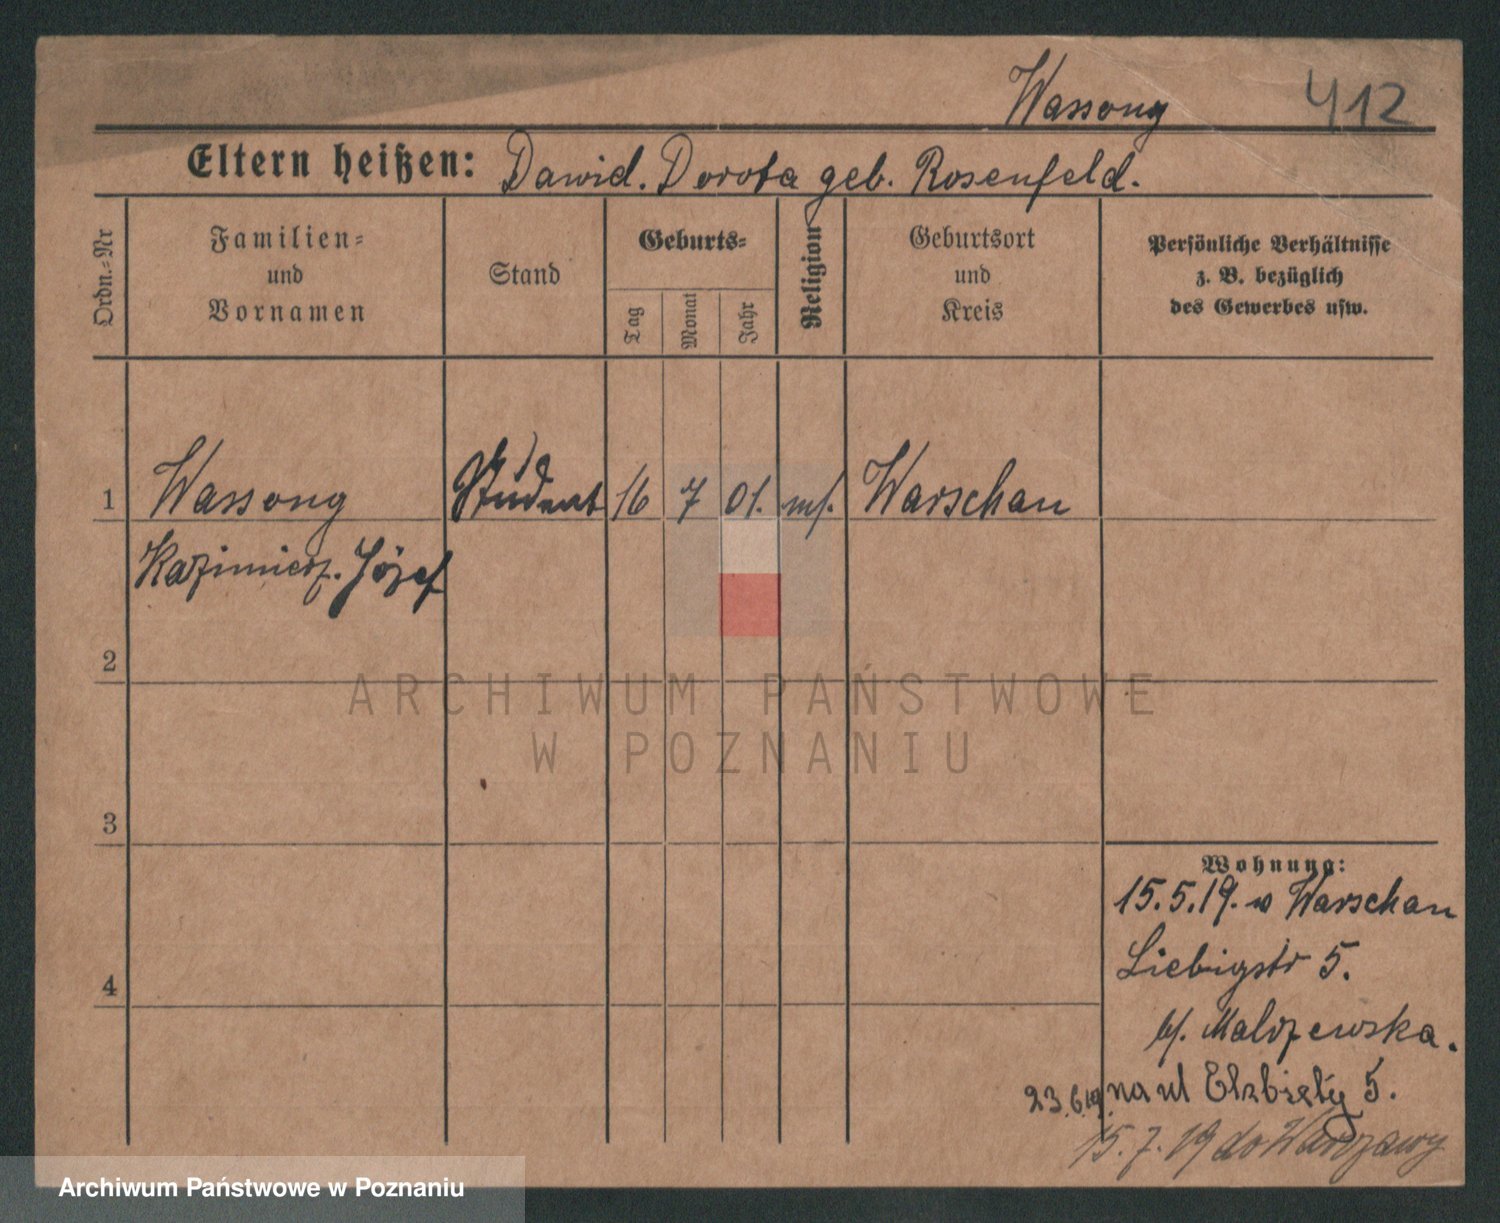 Wassong 412
Eltern heißen: Dawid. Dorota geb. Rosenfeld.
Ordn.-Nr
Familien-
und
Vornamen
Stand
Geburts-
Tag
Monat
Jahr
Religion
Geburtsort
und
Kreis
Persönliche Verhältnisse
z. B. bezüglich
des Gewerbes usw.
1 Wassong Student 16 7 01. Warschau
Kazimierz. Józef
2
ARCHIWUM PAŃSTWOWE
W POZNANIU
3
Wohnung:
15.5.19. Warschau
Liebigstr 5.
4
b/. Malczewska.
23.6.19. na ul Elżbiety 5.
15.7.19 do Warszawy
Archiwum Państwowe w Poznaniu